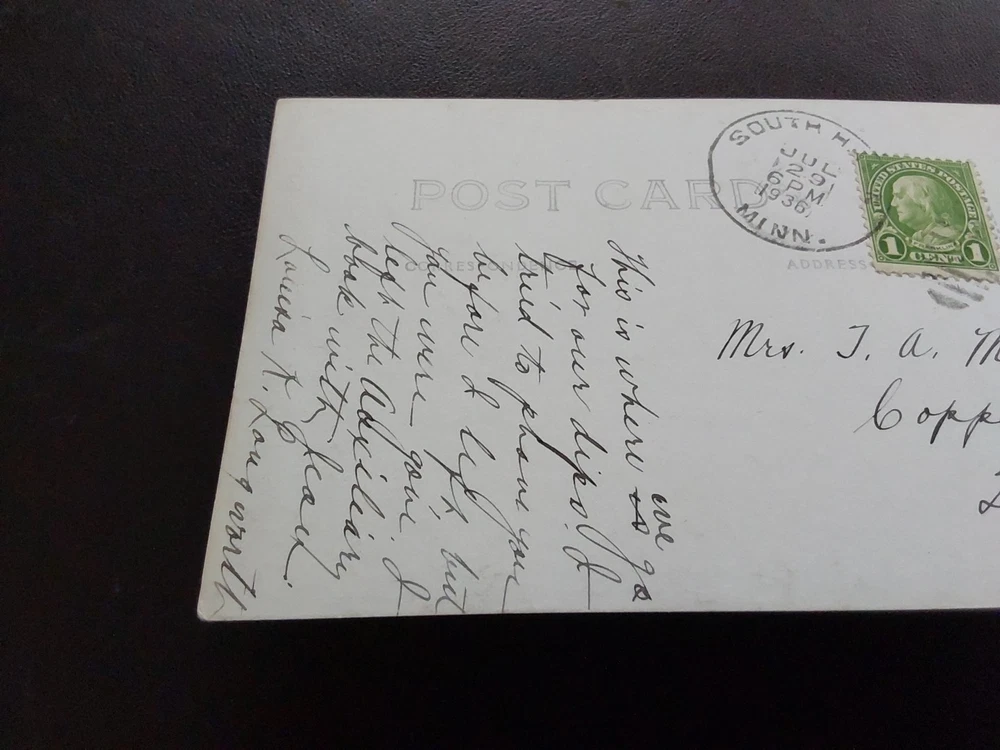 POST CARD
CORRESPONDENCE
ADDRESS
SOUTH H
JUL
29
6 PM
1936
MINN.
UNITED STATES POSTAGE
1 CENT 1
This is where we go
for our dips. I
tried to phone you
before I left but
you were gone. I
left the Auxiliary
book with
Longworth
Mrs. T. A. M
Copp